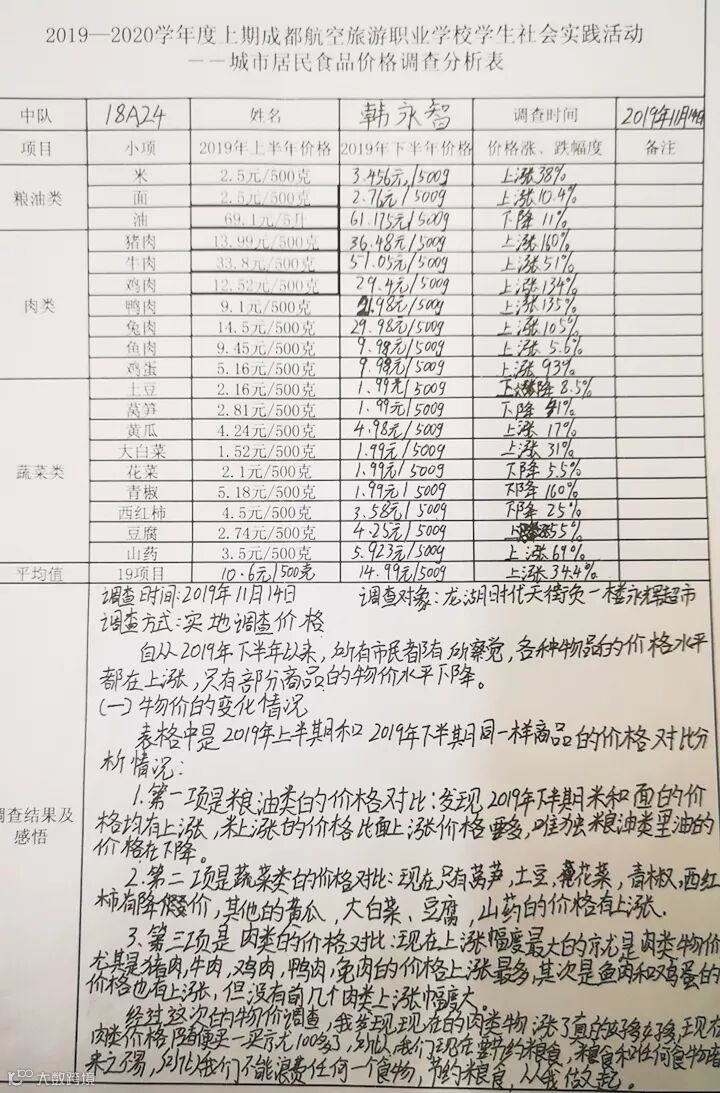 2019—2020学年度上期成都航空旅游职业学校学生社会实践活动
——城市居民食品价格调查分析表
中队 18A24 姓名 韩永智 调查时间 2019年11月14日
项目 小项 2019年上半年价格 2019年下半年价格 价格涨、跌幅度 备注
粮油类 米 2.5元/500克 3.456元/500g 上涨38%
面 2.5元/500克 2.76元/500g 上涨10.4%
油 69.1元/5升 61.175元/500g 下降11%
肉类 猪肉 13.99元/500克 36.48元/500g 上涨160%
牛肉 33.8元/500克 51.05元/500g 上涨51%
鸡肉 12.52元/500克 29.4元/500g 上涨134%
鸭肉 9.1元/500克 21.98元/500g 上涨135%
兔肉 14.5元/500克 29.98元/500g 上涨105%
鱼肉 9.45元/500克 9.98元/500g 上涨5.6%
鸡蛋 5.16元/500克 9.98元/500g 上涨93%
蔬菜类 土豆 2.16元/500克 1.99元/500g 下降8.5%
莴笋 2.81元/500克 1.99元/500g 下降41%
黄瓜 4.24元/500克 4.98元/500g 上涨17%
大白菜 1.52元/500克 1.99元/500g 上涨31%
花菜 2.1元/500克 1.99元/500g 下降5.5%
青椒 5.18元/500克 1.99元/500g 下降160%
西红柿 4.5元/500克 3.58元/500g 下降25%
豆腐 2.74元/500克 4.25元/500g 上涨55%
山药 3.5元/500克 5.923元/500g 上涨69%
平均值 19项目 10.6元/500克 14.99元/500g 上涨34.4%
调查时间:2019年11月14日 调查对象:龙湖时代天街负一楼永辉超市
调查方式:实地调查价格
自从2019年下半年以来,所有市民都有所察觉,各种物品的价格水平
都在上涨,只有部分商品的物价水平下降。
(一)物价的变化情况
表格中是2019年上半期和2019年下半期同一样商品的价格对比分
析情况:
调查结果及感悟
1.第一项是粮油类的价格对比:发现2019年下半期米和面的价
格均有上涨,米上涨的价格比面上涨价格要多,唯独粮油类里油的
价格在下降。
2.第二项是蔬菜类的价格对比:现在只有莴笋,土豆,花菜,青椒,西红
柿有降价,其他的黄瓜、大白菜、豆腐,山药的价格有上涨.
3.第三项是肉类的价格对比:现在上涨幅度最大的就是肉类物价,
尤其是猪肉,牛肉,鸡肉,鸭肉,兔肉的价格上涨最多,其次是鱼肉和鸡蛋的
价格也有上涨,但没有前几个肉类上涨幅度大。
经过这次的物价调查,我发现现在的肉类物涨了真的好多好多,现在
肉类价格随便买一买就元100多了,所以我们现在要节约粮食,粮食和任何食物都
来之不易,所以我们不能浪费任何一个食物,节约粮食,从我做起。
大数跨境